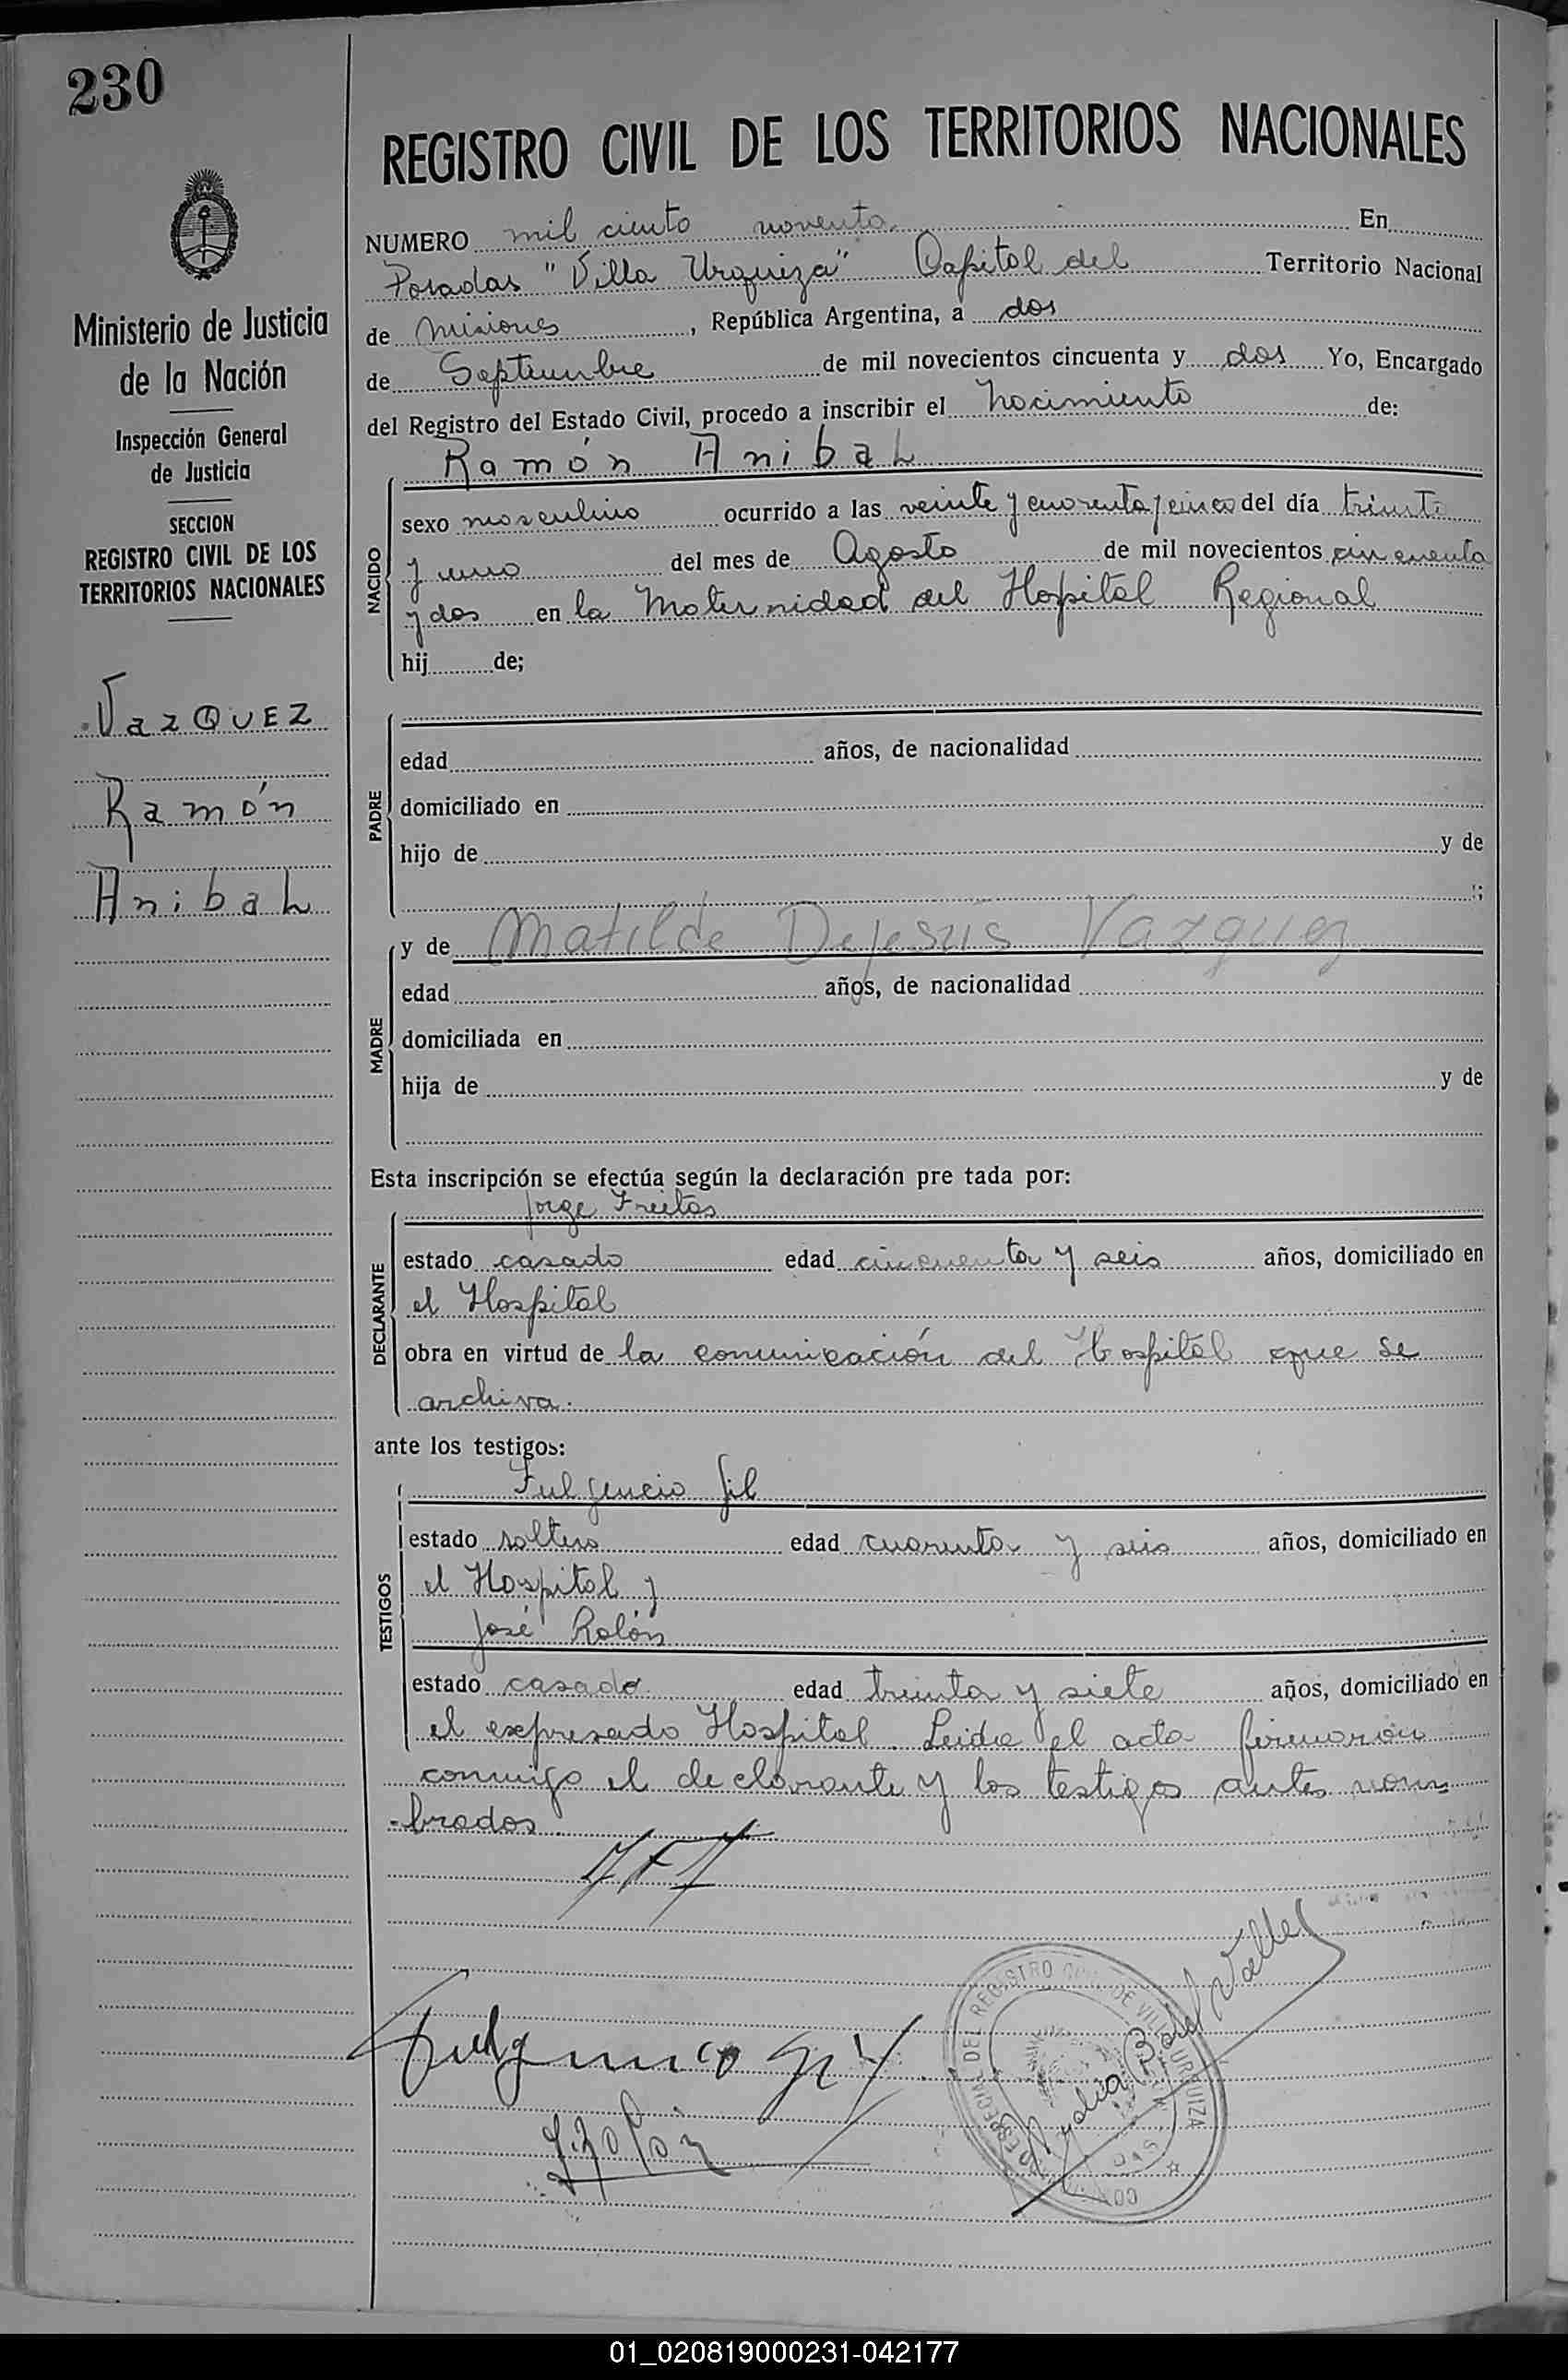 230
REGISTRO CIVIL DE LOS TERRITORIOS NACIONALES
Ministerio de Justicia
de la Nación
Inspección General
de Justicia
SECCION
REGISTRO CIVIL DE LOS
TERRITORIOS NACIONALES
VazQUEZ
Ramón
AnibaL
NUMERO mil ciento noventa. En
Posadas "Villa Urquiza" Capital del Territorio Nacional
de Misiones, República Argentina, a dos
de Septiembre de mil novecientos cincuenta y dos Yo, Encargado
del Registro del Estado Civil, procedo a inscribir el nacimiento de:
Ramón AnibaL
NACIDO
sexo masculino ocurrido a las veinte y cuarenta y cinco del día treinta
y uno del mes de Agosto de mil novecientos cincuenta
y dos en la Maternidad del Hospital Regional
hij de;
PADRE
edad años, de nacionalidad
domiciliado en
hijo de y de
;
MADRE
y de Matilde Dejesús Vazquez
edad años, de nacionalidad
domiciliada en
hija de y de
Esta inscripción se efectúa según la declaración pre tada por:
Jorge Freitas
DECLARANTE
estado casado edad cincuenta y seis años, domiciliado en
el Hospital
obra en virtud de la comunicación del Hospital que se
archiva.
ante los testigos:
Fulgencio Gil
TESTIGOS
estado soltero edad cuarenta y seis años, domiciliado en
el Hospital y
José Rolón
estado casado edad treinta y siete años, domiciliado en
el expresado Hospital. Leida el acta firmaron
conmigo el declarante y los testigos antes nom
-brados
Fulgencio Gil
J. Rolón
DEL REGISTRO CIVIL DE VILLA URQUIZA
01_020819000231-042177